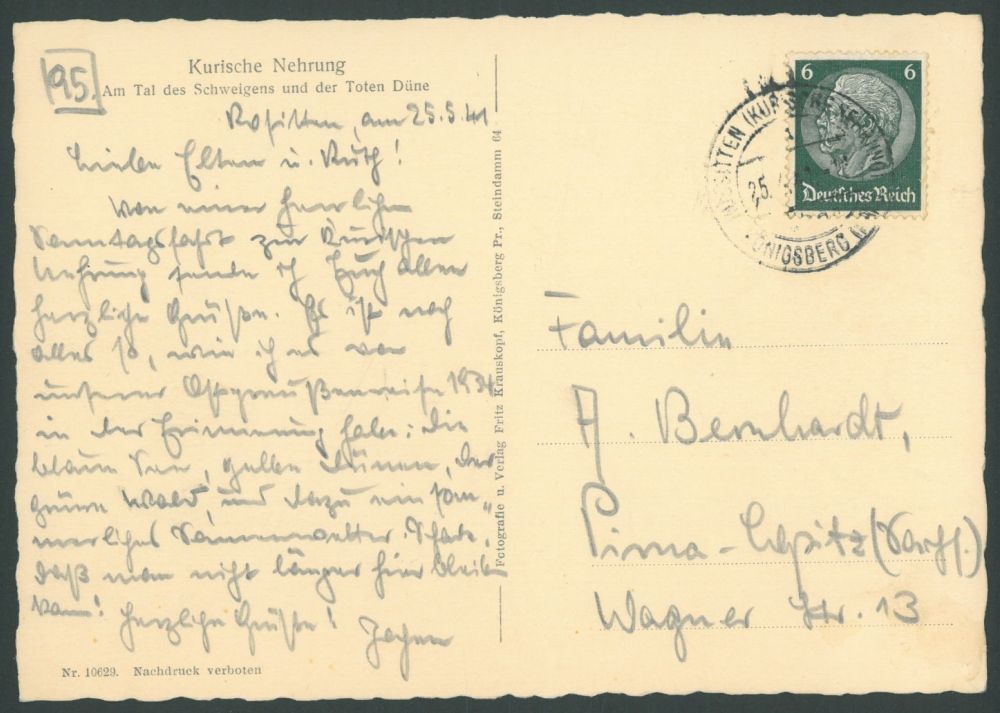 95.
Kurische Nehrung
Am Tal des Schweigens und der Toten Düne
Rossitten, am 25.5.41
Liebe Eltern u. Ruth!
Von einer herrlichen
Sonntagsfahrt zur Kurischen
Nehrung sende ich Euch allen
herzliche Grüße. Es ist noch
alles so, wie ich es von
unserer Ostpreußenreise 1934
in der Erinnerung habe: die
blaue See, gelbe Dünen, der
grüne Wald, und dazu ein som„
merliches Sonnenwetter. Schade,
daß man nicht länger hier bleiben
kann! Herzliche Grüße!
Jochen
Nr. 10629. Nachdruck verboten
Fotografie u. Verlag Fritz Krauskopf, Königsberg Pr., Steindamm 64
6 6
Deutsches Reich
(KUR. NEHRUNG)
25.
KÖNIGSBERG
Familie
A. Bernhardt,
Pirna-Copitz (Sachs.)
Wagner Str. 13